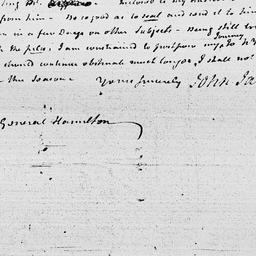 from him - Be so good as to seal and send it to him
in a few Days on other Subjects - Being still
the piles, I am constrained to postpone my Journey to
should continue obstinate much longer, I shall not
this Season - Yours sincerely John Ja
General Hamilton